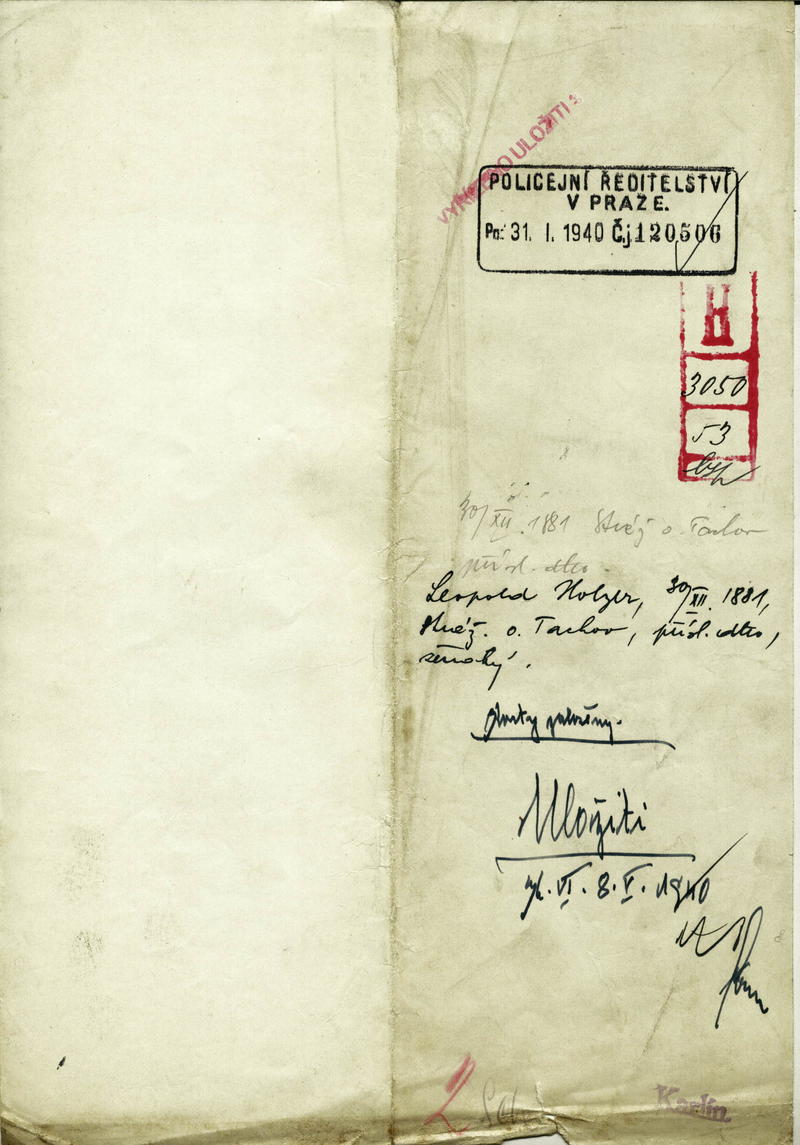 ULOŽITI
POLICEJNÍ ŘEDITELSTVÍ
V PRAZE.
Pn: 31. I. 1940 Čj 120506
H
3050
53
30/XII. 1881 Stráž o. Tachov
přísl. dto.
Leopold Holzer, 30/XII. 1881,
Stráž. o. Tachov, přísl. dto,
ženatý.
Uložiti
VI. 8. V. 1940
2
Karlín